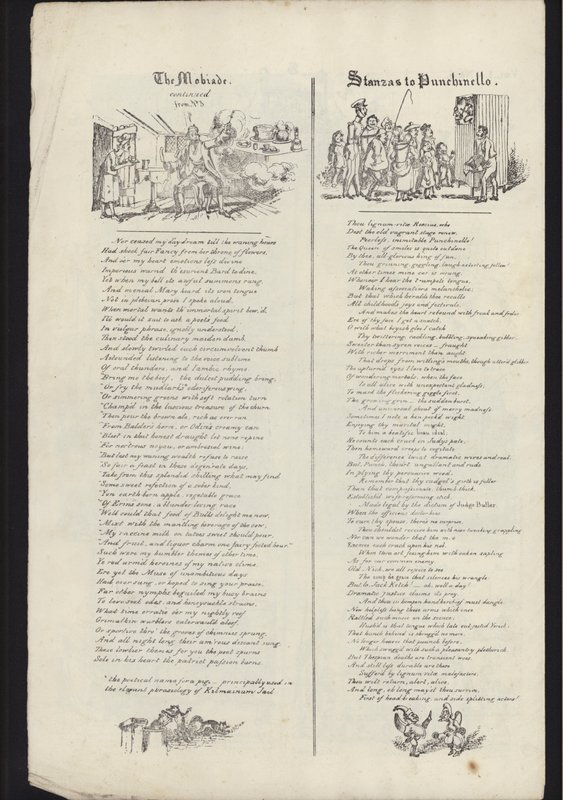 The Mobiade.
continued
from No 8
Nor ceased my day dream till the waning hours
Had shook fair Fancy from her throng of flowers,
And o'er my heart emotions left divine
Imperious warn'd th' esurient Bard to dine.
Yet when my bell its awful summons rung
And menial Mary heard its iron tongue
Not in plebeian prose I spoke aloud.
When mortal wants th' immortal spirit bow'd,
Ill would it suit to ask a poets food
In vulgar phrase, ignobly understood.
Then stood the culinary maiden dumb
And slowly twirled each circumvolvent thumb
Astounded listening to the voice sublime
Of oral thunders, and Iambic rhyme.
"Bring me the beef, the dulcet pudding bring,
"Or fry the mud lark's* odoriferous wing.
"Or simmering greens with soft rotation turn
"Champ'd in the luscious treasure of the churn
"Then pour the brown ale, rich as ever ran
"From Balder's horn, or Odin's creamy can
"Blest in that honest draught let none repine
"For nectrous noyeau, or ambrosial wine.
"But lest my waning wealth refuse to raise
"So fair a feast in these degen'rate days,
"Take from this splendid shilling what may find
"Some sweet refection of a sober kind.
"Yon earth-born apple, vegetable grace
"Of Erins sons, a blundering race
"Well could that food of Bulls delight me now,
"Mixt with the mantling beverage of the cow.
"My vaccine milk on tatoes sweet should pour
"And fruit, and liquor charm one fairy footed hour."
Such were my humbler themes of other time,
To real unreal heroines of my native clime.
Ere yet the Muse of unambitious days
Had ever sung, or hoped to sing your praise.
Far other nymphs beguiled my busy brains
To love sick odes, and honeysuckle strains.
What time erratic o'er my nightly roof
Grimalkin warblers caterwauld aloof
Or sportive thro' the groves of chimnies sprung
And all night long their am'rous descant sung
These lowlier themes for you the poet spurns
Sole in his heart the patriot passion burns.
* the poetical name for a pig — principally used in
the elegant phraseology of Kilmainum Jail
Stanzas to Punchinello.
Thou lignum-vitæ Roscius, who
Dost the old vagrant stage renew,
Peerless, inimitable Punchinello!
The Queen of smiles is quite outdone
By thee, all-glorious king of fun,
Thou grinning, giggling, laugh-extorting fellow!
At other times mine ear is wrung
Whene'er I hear the trumpets tongue,
Waking associations melancholic;
But that which heralds thee recalls
All childhoods joys and festivals,
And makes the heart rebound with freak and frolic.
Ere of thy face I get a snatch,
O with what boyish glee I catch
Thy twittering, cackling, bubbling, squeaking gibber.
Sweeter than syren voices — fraught
With richer merriment than aught
That drops from witling mouths, though utter'd glibber.
The upturned eyes I love to trace
Of wondering mortals, when their face
Is all alive with unexpectant gladness;
To mark the flickering giggle first,
The growing grin — the sudden burst,
And universal shout of merry madness
Sometimes I note a hen-pecked wight
Enjoying thy marital might,
To him a beatific beau ideal;
He counts each crack on Judy's pate,
Then homeward creeps to cogitate
The difference twixt dramatic wives and real.
But, Punch, thou'rt ungallant and rude
In plying thy persuasive wood;
Remember that thy cudgel's girth is fuller
Than that compassionate, thumb-thick,
Establish'd wife-reforming stick,
Made legal by the dictum of Judge Buller.
When the officious doctor hies
To cure thy spouse, there's no surprise
Thou shouldst receive him with nose-tweaking grappling
Nor can we wonder that the mob
Encores each crack upon his nob,
When thou art feeing him with oaken sapling.
As for our common enemy
Old Nick, we all rejoice to see
The coup de grace that silences his wrangle.
But lo, Jack Ketch! — ah, well-a-day!
Dramatic justice claims its prey,
And thou in hempen handkerchief must dangle.
Now helplessly hang those arms which once
Rattled such music on the sconce;
Hush'd is that tongue which late out-jested Yorick;
That hunch behind is shrugg'd no more,
No longer heaves that paunch before,
Which swagg'd with such a pleasantry plethoric.
But Thespian deaths are transient woes,
And still less durable are those
Suffer'd by lignum-vitæ malefactors;
Thou wilt return, alert, alive,
And long, oh long may'st thou survive,
First of head-breaking and side-splitting actors!